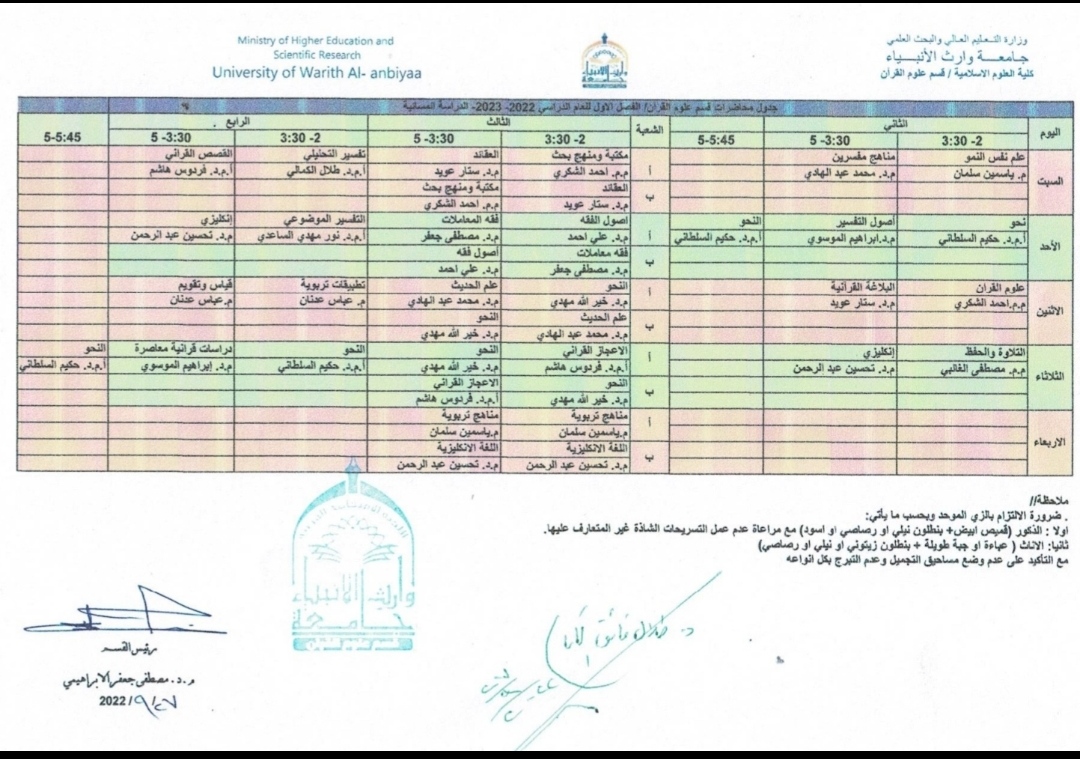 Ministry of Higher Education and
Scientific Research
University of Warith Al- anbiyaa
وزارة التعليم العالي والبحث العلمي
جامعة وارث الأنبياء
كلية العلوم الاسلامية / قسم علوم القران
جدول محاضرات قسم علوم القران/ الفصل الاول للعام الدراسي 2022- 2023- الدراسة المسائية
اليوم الثاني الشعبة الثالث الرابع
2- 3:30 3:30- 5 5-5:45 2- 3:30 3:30- 5 2- 3:30 3:30- 5 5-5:45
السبت
علم نفس النمو مناهج مفسرين أ مكتبة ومنهج بحث العقائد تفسير التحليلي القصص القراني
م. ياسمين سلمان م.د. محمد عبد الهادي م.م. احمد الشكري م.د. ستار عويد أ.م.د. طلال الكمالي أ.م.د. فردوس هاشم
ب العقائد مكتبة ومنهج بحث
م.د. ستار عويد م.م. احمد الشكري
الأحد
نحو أصول التفسير النحو أ اصول الفقه فقه المعاملات التفسير الموضوعي إنكليزي
أ.م.د. حكيم السلطاني م.د.ابراهيم الموسوي أ.م.د. حكيم السلطاني م.د. علي احمد م.د. مصطفى جعفر أ.م.د. نور مهدي الساعدي م.د. تحسين عبد الرحمن
ب فقه معاملات أصول فقه
م.د. مصطفى جعفر م.د. علي احمد
الاثنين
علوم القران البلاغة القرآنية أ النحو علم الحديث تطبيقات تربوية قياس وتقويم
م.م.احمد الشكري م.د. ستار عويد م.د. خير الله مهدي م.د. محمد عبد الهادي م. عباس عدنان م.عباس عدنان
ب علم الحديث النحو
م.د. محمد عبد الهادي م.د. خير الله مهدي
الثلاثاء
التلاوة والحفظ إنكليزي أ الاعجاز القراني النحو النحو دراسات قرانية معاصرة النحو
م.م. مصطفى الغالبي م.د. تحسين عبد الرحمن أ.م.د. فردوس هاشم م.د. خير الله مهدي أ.م.د. حكيم السلطاني م.د. إبراهيم الموسوي أ.م.د. حكيم السلطاني
ب النحو الاعجاز القراني
م.د. خير الله مهدي أ.م.د. فردوس هاشم
الاربعاء
أ مناهج تربوية مناهج تربوية
م.ياسمين سلمان م.ياسمين سلمان
ب اللغة الانكليزية اللغة الانكليزية
م.د. تحسين عبد الرحمن م.د. تحسين عبد الرحمن
ملاحظة//
. ضرورة الالتزام بالزي الموحد وبحسب ما يأتي:
اولا : الذكور (قميص ابيض+ بنطلون نيلي او رصاصي او اسود) مع مراعاة عدم عمل التسريحات الشاذة غير المتعارف عليها.
ثانيا: الاناث ( عباءة او جبة طويلة + بنطلون زيتوني او نيلي او رصاصي)
مع التأكيد على عدم وضع مساحيق التجميل وعدم التبرج بكل انواعه
وارث الأنبياء
جامعة
رئيس القسم
م.د. مصطفى جعفر الابراهيمي
2022/٩/٢٧